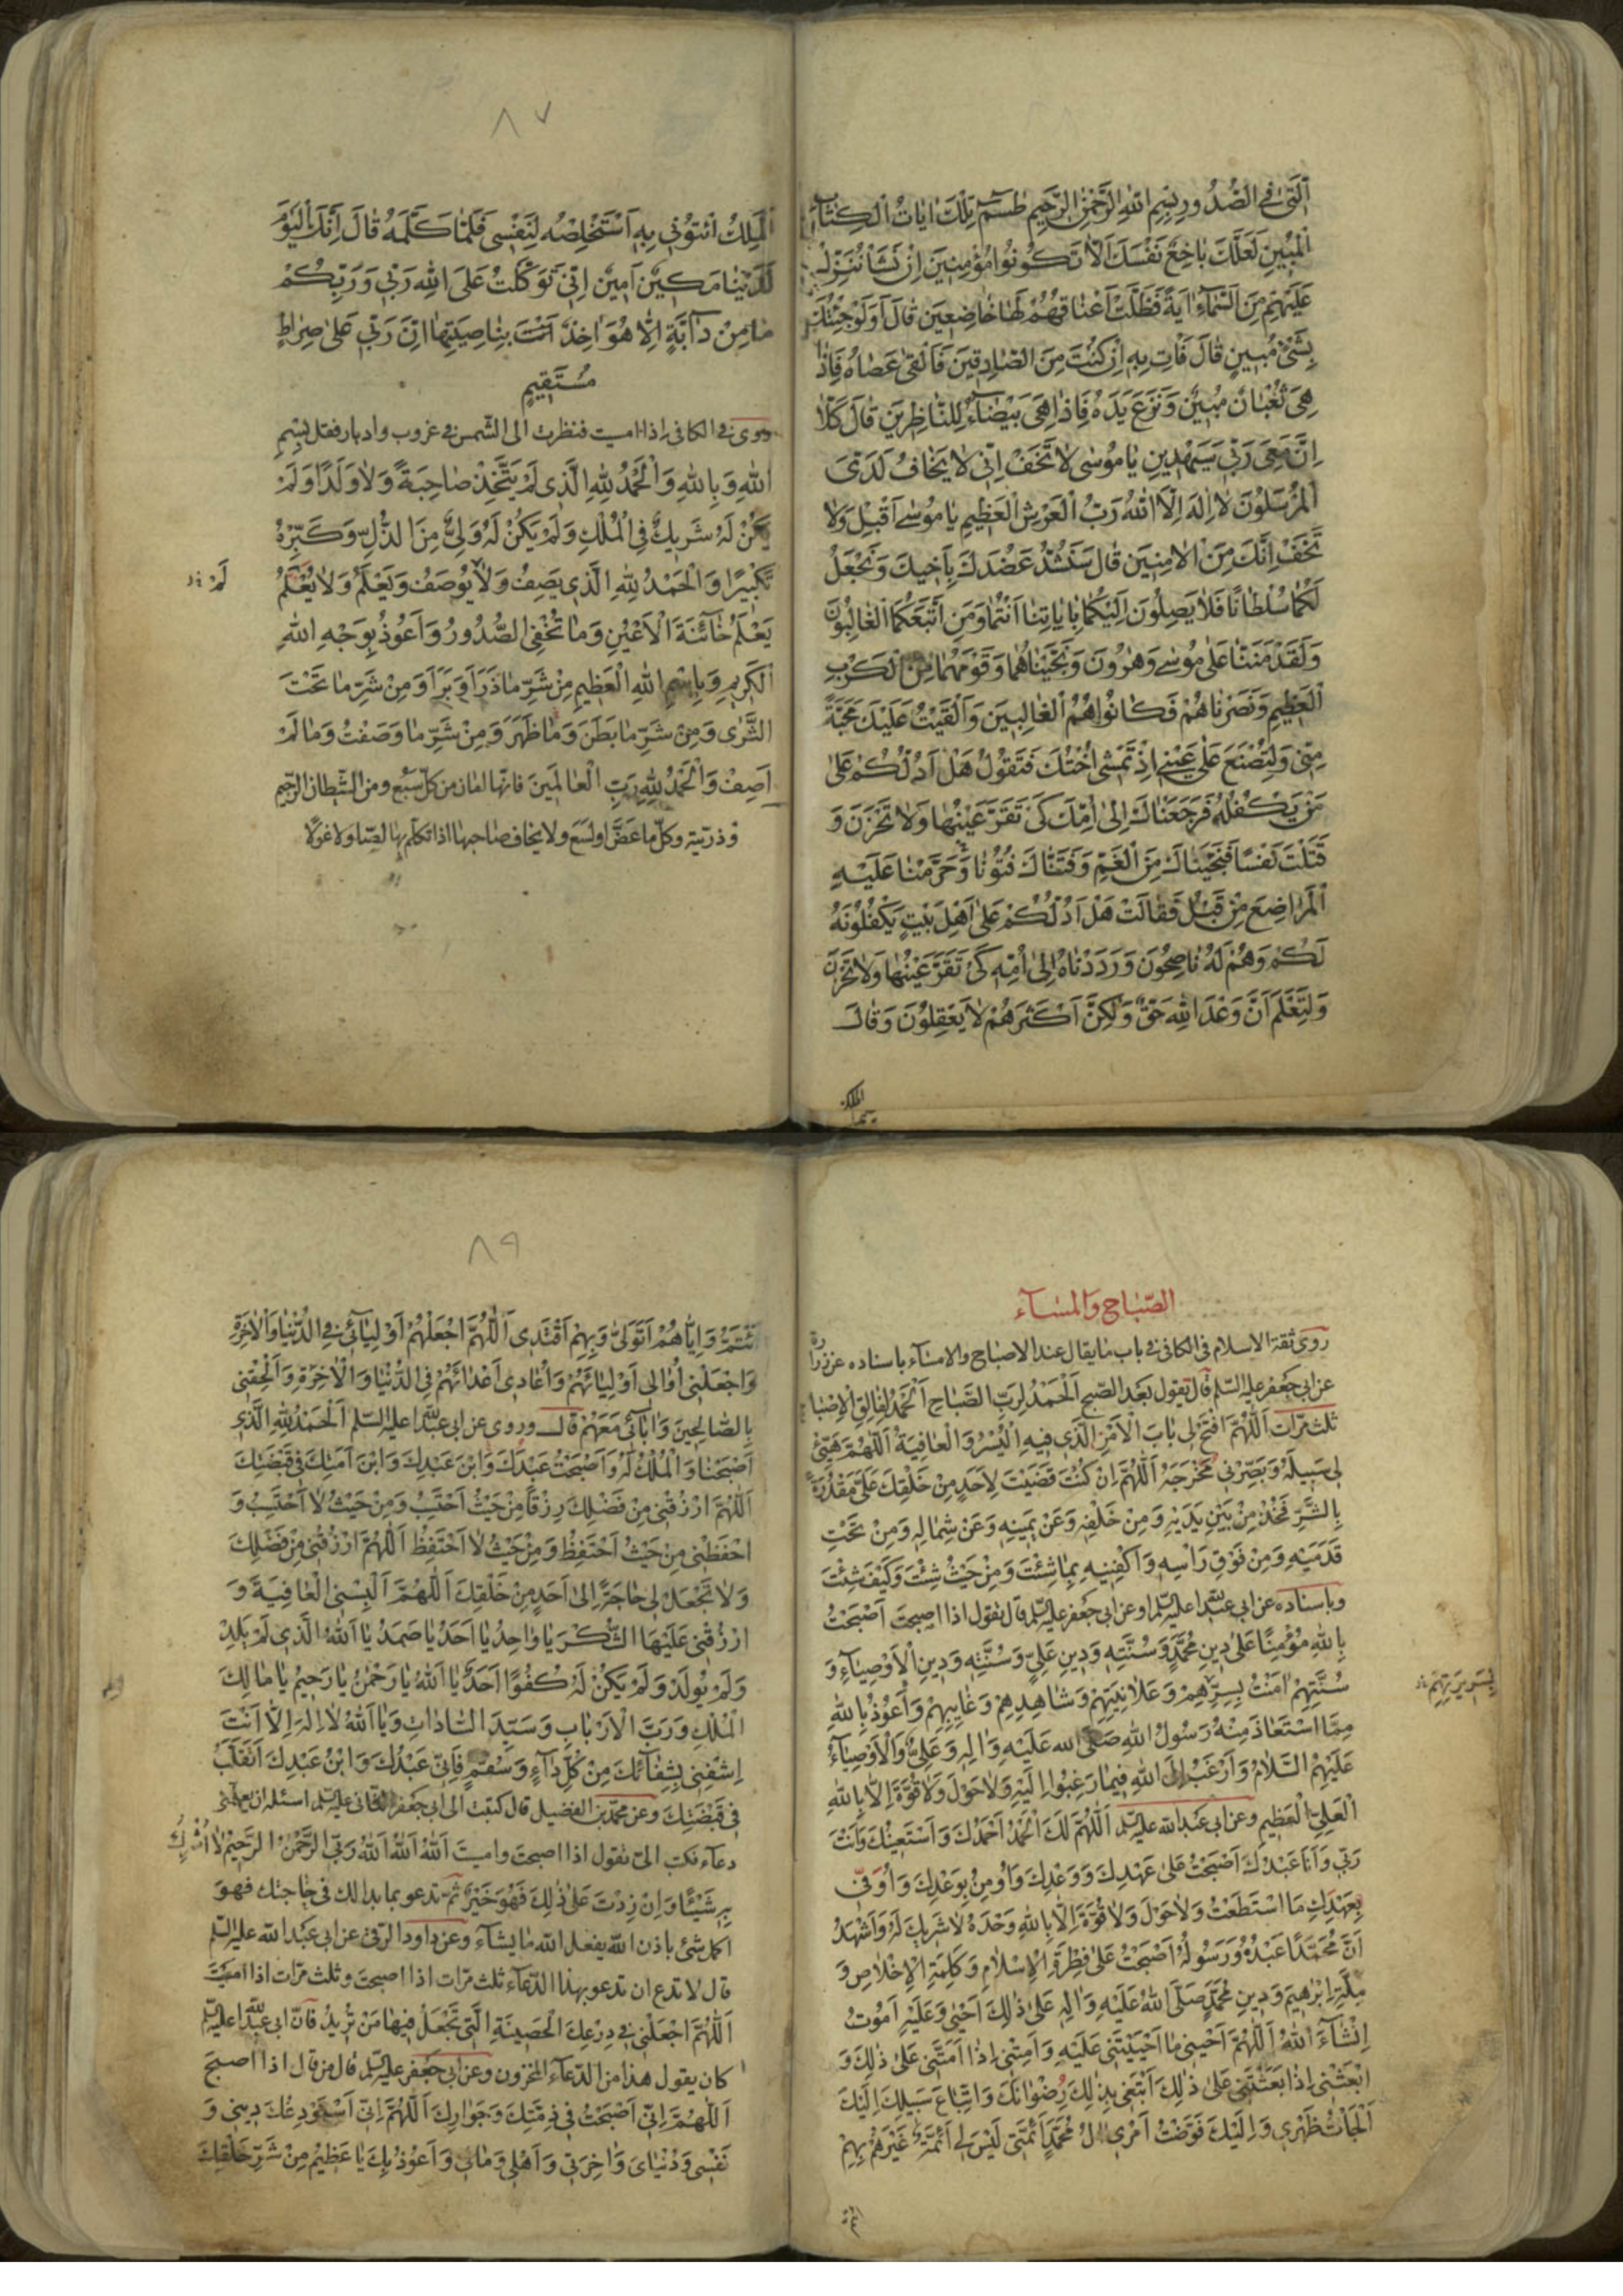 الَّتِي فِي الصُّدُورِ بِسْمِ اللهِ الرَّحْمٰنِ الرَّحِيمِ طٰسم تِلْكَ اٰيَاتُ الْكِتَابِ
الْمُبِينِ لَعَلَّكَ بَاخِعٌ نَفْسَكَ اَلَّا تَكُونُوا مُؤْمِنِينَ اِنْ نَشَأْ نُنَزِّلْ
عَلَيْهِمْ مِنَ السَّمَاءِ اٰيَةً فَظَلَّتْ اَعْنَاقُهُمْ لَهَا خَاضِعِينَ قَالَ اَوَلَوْ جِئْتُكَ
بِشَيْءٍ مُبِينٍ قَالَ فَأْتِ بِهِ اِنْ كُنْتَ مِنَ الصَّادِقِينَ فَاَلْقٰى عَصَاهُ فَاِذَا
هِيَ ثُعْبَانٌ مُبِينٌ وَنَزَعَ يَدَهُ فَاِذَا هِيَ بَيْضَاءُ لِلنَّاظِرِينَ قَالَ كَلَّا
اِنَّ مَعِيَ رَبِّي سَيَهْدِينِ يَا مُوسٰى لَا تَخَفْ اِنِّي لَا يَخَافُ لَدَيَّ
الْمُرْسَلُونَ لَا اِلٰهَ اِلَّا اللهُ رَبُّ الْعَرْشِ الْعَظِيمِ يَا مُوسٰى اَقْبِلْ وَلَا
تَخَفْ اِنَّكَ مِنَ الْاٰمِنِينَ قَالَ سَنَشُدُّ عَضُدَكَ بِاَخِيكَ وَنَجْعَلُ
لَكُمَا سُلْطَانًا فَلَا يَصِلُونَ اِلَيْكُمَا بِاٰيَاتِنَا اَنْتُمَا وَمَنِ اتَّبَعَكُمَا الْغَالِبُونَ
وَلَقَدْ مَنَنَّا عَلٰى مُوسٰى وَهٰرُونَ وَنَجَّيْنَاهُمَا وَقَوْمَهُمَا مِنَ الْكَرْبِ
الْعَظِيمِ وَنَصَرْنَاهُمْ فَكَانُوا هُمُ الْغَالِبِينَ وَاَلْقَيْتُ عَلَيْكَ مَحَبَّةً
مِنِّي وَلِتُصْنَعَ عَلٰى عَيْنِي اِذْ تَمْشِي اُخْتُكَ فَتَقُولُ هَلْ اَدُلُّكُمْ عَلٰى
مَنْ يَكْفُلُهُ فَرَجَعْنَاكَ اِلٰى اُمِّكَ كَيْ تَقَرَّ عَيْنُهَا وَلَا تَحْزَنَ وَ
قَتَلْتَ نَفْسًا فَنَجَّيْنَاكَ مِنَ الْغَمِّ وَفَتَنَّاكَ فُتُونًا وَحَرَّمْنَا عَلَيْهِ
الْمَرَاضِعَ مِنْ قَبْلُ فَقَالَتْ هَلْ اَدُلُّكُمْ عَلٰى اَهْلِ بَيْتٍ يَكْفُلُونَهُ
لَكُمْ وَهُمْ لَهُ نَاصِحُونَ وَرَدَدْنَاهُ اِلٰى اُمِّهِ كَيْ تَقَرَّ عَيْنُهَا وَلَا تَحْزَنَ
وَلِتَعْلَمَ اَنَّ وَعْدَ اللهِ حَقٌّ وَلٰكِنَّ اَكْثَرَهُمْ لَا يَعْقِلُونَ وَقَالَ
الملك
٨٧
الْمَلِكُ ائْتُونِي بِهِ اَسْتَخْلِصْهُ لِنَفْسِي فَلَمَّا كَلَّمَهُ قَالَ اِنَّكَ الْيَوْمَ
لَدَيْنَا مَكِينٌ اَمِينٌ اِنِّي تَوَكَّلْتُ عَلَى اللهِ رَبِّي وَرَبِّكُمْ
مَا مِنْ دَآبَّةٍ اِلَّا هُوَ اٰخِذٌ بِنَاصِيَتِهَا اِنَّ رَبِّي عَلٰى صِرَاطٍ
مُسْتَقِيمٍ
روى فى الكافى اذا امسيت فنظرت الى الشمس فى غروب وادبار فقل بِسْمِ
اللهِ وَبِاللهِ وَالْحَمْدُ لِلّٰهِ الَّذِي لَمْ يَتَّخِذْ صَاحِبَةً وَلَا وَلَدًا وَلَمْ
يَكُنْ لَهُ شَرِيكٌ فِي الْمُلْكِ وَلَمْ يَكُنْ لَهُ وَلِيٌّ مِنَ الذُّلِّ وَكَبِّرْهُ
تَكْبِيرًا وَالْحَمْدُ لِلّٰهِ الَّذِي يَصِفُ وَلَا يُوصَفُ وَيَعْلَمُ وَلَا يُعْلَمُ
لَمْ
يَعْلَمُ خَآئِنَةَ الْاَعْيُنِ وَمَا تُخْفِي الصُّدُورُ وَاَعُوذُ بِوَجْهِ اللهِ
الْكَرِيمِ وَبِاسْمِ اللهِ الْعَظِيمِ مِنْ شَرِّ مَا ذَرَاَ وَبَرَاَ وَمِنْ شَرِّ مَا تَحْتَ
الثَّرٰى وَمِنْ شَرِّ مَا بَطَنَ وَمَا ظَهَرَ وَمِنْ شَرِّ مَا وَصَفْتُ وَمَا لَمْ
اَصِفْ وَالْحَمْدُ لِلّٰهِ رَبِّ الْعَالَمِينَ فانها امان من كل سبع ومن الشيطان الرجيم
وذريته وكل ما عض او لسع ولا يخاف صاحبها اذا تكلم بها لصا ولا غولا
الصباح والمسآء
روى ثقة الاسلام فى الكافى فى باب ما يقال عند الاصباح والامسآء باسناده عن زرارة
عن ابى جعفر عليه السلم قال تقول بعد الصبح اَلْحَمْدُ لِرَبِّ الصَّبَاحِ اَلْحَمْدُ لِفَالِقِ الْاِصْبَاحِ
ثلث مرات اَللّٰهُمَّ افْتَحْ لِي بَابَ الْاَمْرِ الَّذِي فِيهِ الْيُسْرُ وَالْعَافِيَةُ اَللّٰهُمَّ هَيِّئْ
لِي سَبِيلَهُ وَبَصِّرْنِي مَخْرَجَهُ اَللّٰهُمَّ اِنْ كُنْتَ قَضَيْتَ لِاَحَدٍ مِنْ خَلْقِكَ عَلَيَّ مَقْدُرَةً
بِالشَّرِّ فَخُذْهُ مِنْ بَيْنِ يَدَيْهِ وَمِنْ خَلْفِهِ وَعَنْ يَمِينِهِ وَعَنْ شِمَالِهِ وَمِنْ تَحْتِ
قَدَمَيْهِ وَمِنْ فَوْقِ رَاْسِهِ وَاكْفِنِيهِ بِمَا شِئْتَ وَمِنْ حَيْثُ شِئْتَ وَكَيْفَ شِئْتَ
وباسناده عن ابى عبدالله عليه السلم او عن ابى جعفر عليه السلم قال تقول اذا اصبحت اَصْبَحْتُ
بِاللهِ مُؤْمِنًا عَلٰى دِينِ مُحَمَّدٍ وَسُنَّتِهِ وَدِينِ عَلِيٍّ وَسُنَّتِهِ وَدِينِ الْاَوْصِيَاءِ وَ
سُنَّتِهِمْ اٰمَنْتُ بِسِرِّهِمْ وَعَلَانِيَتِهِمْ وَشَاهِدِهِمْ وَغَايِبِهِمْ وَاَعُوذُ بِاللهِ
بِسَرِيرَتِهِمْ
مِمَّا اسْتَعَاذَ مِنْهُ رَسُولُ اللهِ صَلَّى الله عَلَيْهِ وَاٰلِهِ وَعَلِيٌّ وَالْاَوْصِيَآءُ
عَلَيْهِمُ السَّلَامُ وَاَرْغَبُ اِلَى اللهِ فِيمَا رَغِبُوا اِلَيْهِ وَلَا حَوْلَ وَلَا قُوَّةَ اِلَّا بِاللهِ
الْعَلِيِّ الْعَظِيمِ وعن ابى عبدالله عليه السلم اَللّٰهُمَّ لَكَ الْحَمْدُ اَحْمَدُكَ وَاَسْتَعِينُكَ وَاَنْتَ
رَبِّي وَاَنَا عَبْدُكَ اَصْبَحْتُ عَلٰى عَهْدِكَ وَوَعْدِكَ وَاُومِنُ بِوَعْدِكَ وَاُوفِي
بِعَهْدِكَ مَا اسْتَطَعْتُ وَلَا حَوْلَ وَلَا قُوَّةَ اِلَّا بِاللهِ وَحْدَهُ لَا شَرِيكَ لَهُ وَاَشْهَدُ
اَنَّ مُحَمَّدًا عَبْدُهُ وَرَسُولُهُ اَصْبَحْتُ عَلٰى فِطْرَةِ الْاِسْلَامِ وَكَلِمَةِ الْاِخْلَاصِ وَ
مِلَّةِ اِبْرٰهِيمَ وَدِينِ مُحَمَّدٍ صَلَّى اللهُ عَلَيْهِ وَاٰلِهِ عَلٰى ذٰلِكَ اَحْيٰى وَعَلَيْهِ اَمُوتُ
اِنْشَآءَ اللهُ اَللّٰهُمَّ اَحْيِنِي مَا اَحْيَيْتَنِي عَلَيْهِ وَاَمِتْنِي اِذَا اَمَتَّنِي عَلٰى ذٰلِكَ وَ
ابْعَثْنِي اِذَا بَعَثْتَنِي عَلٰى ذٰلِكَ اَبْتَغِي بِذٰلِكَ رِضْوَانَكَ وَاتِّبَاعَ سَبِيلِكَ اِلَيْكَ
اَلْجَأْتُ ظَهْرِي وَاِلَيْكَ فَوَّضْتُ اَمْرِي اٰلُ مُحَمَّدٍ اَئِمَّتِي لَيْسَ لِي اَئِمَّةٌ غَيْرَهُمْ بِهِمْ
٨٩
ئْتَمُّ وَاِيَّاهُمْ اَتَوَلّٰى وَبِهِمْ اَقْتَدِي اَللّٰهُمَّ اجْعَلْهُمْ اَوْلِيَائِي فِي الدُّنْيَا وَالْاٰخِرَةِ
وَاجْعَلْنِي اُوَالِي اَوْلِيَائَهُمْ وَاُعَادِي اَعْدَائَهُمْ فِي الدُّنْيَا وَالْاٰخِرَةِ وَاَلْحِقْنِي
بِالصَّالِحِينَ وَاٰبَائِي مَعَهُمْ قال وروى عن ابى عبدالله عليه السلم اَلْحَمْدُ لِلّٰهِ الَّذِي
اَصْبَحْنَا وَالْمُلْكُ لَهُ وَاَصْبَحْتُ عَبْدَكَ وَابْنَ عَبْدِكَ وَابْنَ اَمَتِكَ فِي قَبْضَتِكَ
اَللّٰهُمَّ ارْزُقْنِي مِنْ فَضْلِكَ رِزْقًا مِنْ حَيْثُ اَحْتَسِبُ وَمِنْ حَيْثُ لَا اَحْتَسِبُ وَ
احْفَظْنِي مِنْ حَيْثُ اَحْتَفِظُ وَمِنْ حَيْثُ لَا اَحْتَفِظُ اَللّٰهُمَّ ارْزُقْنِي مِنْ فَضْلِكَ
وَلَا تَجْعَلْ لِي حَاجَةً اِلٰى اَحَدٍ مِنْ خَلْقِكَ اَللّٰهُمَّ اَلْبِسْنِي الْعَافِيَةَ وَ
ارْزُقْنِي عَلَيْهَا الشُّكْرَ يَا وَاحِدُ يَا اَحَدُ يَا صَمَدُ يَا اَللهُ الَّذِي لَمْ يَلِدْ
وَلَمْ يُولَدْ وَلَمْ يَكُنْ لَهُ كُفُوًا اَحَدٌ يَا اَللهُ يَا رَحْمٰنُ يَا رَحِيمُ يَا مَالِكَ
الْمُلْكِ وَرَبَّ الْاَرْبَابِ وَسَيِّدَ السَّادَاتِ وَيَا اَللهُ لَا اِلٰهَ اِلَّا اَنْتَ
اِشْفِنِي بِشِفَائِكَ مِنْ كُلِّ دَآءٍ وَسُقْمٍ فَاِنِّي عَبْدُكَ وَابْنُ عَبْدِكَ اَتَقَلَّبُ
فِي قَبْضَتِكَ وعن محمد بن الفضيل قال كتبت الى ابى جعفر الثانى عليه السلم اسئله ان يعلمنى
دعآء فكتب الىّ تقول اذا اصبحت وامسيت اَللهُ اَللهُ اَللهُ رَبِّيَ الرَّحْمٰنُ الرَّحِيمُ لَا اُشْرِكُ
بِهِ شَيْئًا وَاِنْ زِدْتَ عَلٰى ذٰلِكَ فَهُوَ خَيْرٌ ثم تدعو بما بدا لك فى حاجتك فهو
لكل شئ باذن الله يفعل الله ما يشآء وعن داود الرقى عن ابى عبد الله عليه السلم
قال لا تدع ان تدعو بهذا الدعآء ثلث مرات اذا اصبحت وثلث مرات اذا امسيت
اَللّٰهُمَّ اجْعَلْنِي فِي دِرْعِكَ الْحَصِينَةِ الَّتِي تَجْعَلُ فِيهَا مَنْ تُرِيدُ فان ابى عبدالله عليه السلم
كان يقول هذا من الدعآء المخزون وعن ابى جعفر عليه السلم قال من قال اذا اصبح
اَللّٰهُمَّ اِنِّي اَصْبَحْتُ فِي ذِمَّتِكَ وَجِوَارِكَ اَللّٰهُمَّ اِنِّي اَسْتَوْدِعُكَ دِينِي وَ
نَفْسِي وَدُنْيَايَ وَاٰخِرَتِي وَاَهْلِي وَمَالِي وَاَعُوذُ بِكَ يَا عَظِيمُ مِنْ شَرِّ خَلْقِكَ